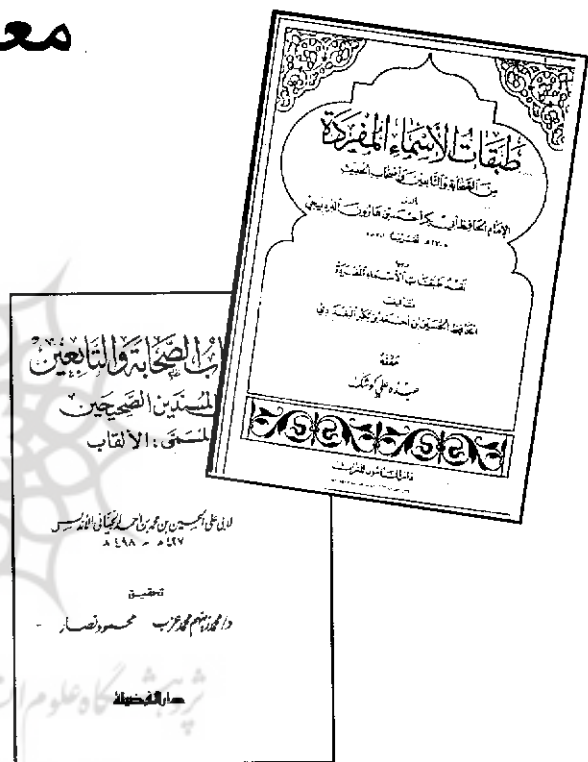 معر
طبقات الأسماء المفردة
من الصحابة والتابعين وأصحاب الحديث
الإمام الحافظ أبي بكر أحمد بن هارون البرديجي
نقد طبقات الأسماء المفردة
الحافظ الحسين بن أحمد بن بكير البغدادي
حققه
عبده علي كوشك
دار المأمون للتراث
اب الصحابة والتابعين
المسندين الصحيحين
المسمى: الألقاب
لأبي علي الحسين بن محمد بن أحمد الجياني الأندلسي
٤٢٧ هـ - ٤٩٨ هـ
تحقيق
د/ محمد زينهم محمد عزب محمود نصار
دار الفضيلة
پژوهشگاه علوم ان